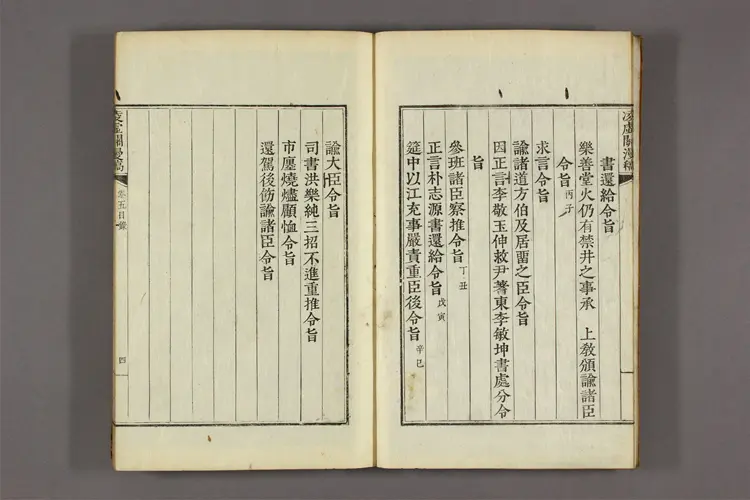 凌虛關漫稿
書還給令旨
樂善堂火仍有禁井之事承　上敎頒諭諸臣
令旨丙子
求言令旨
諭諸道方伯及居畱之臣令旨
因正言李敬玉伸救尹蓍東李敏坤書處分令
旨
參班諸臣察推令旨丁丑
正言朴志源書還給令旨戊寅
筵中以江充事嚴責重臣後令旨辛巳
諭大臣令旨
司書洪樂純三招不進重推令旨
市廛燒燼顧恤令旨
還駕後飭諭諸臣令旨
凌虛關漫稿
卷五目錄
四